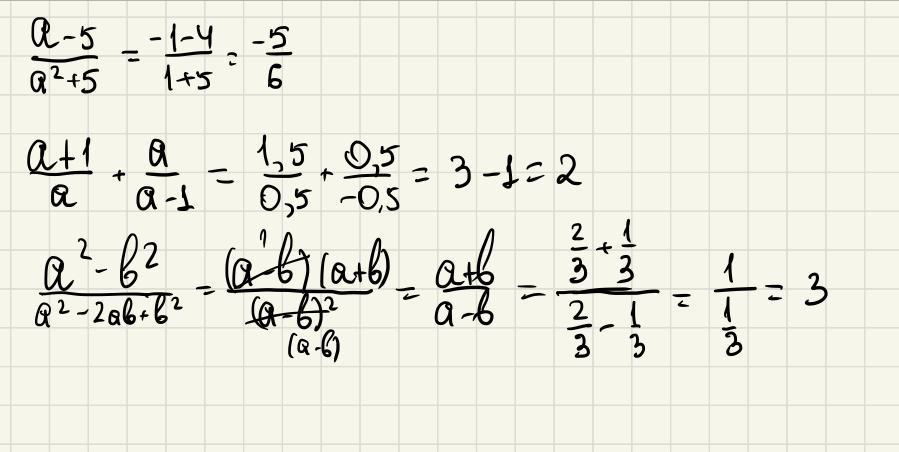 (a-5)/(a²+5) = (-1-4)/(1+5) = -5/6
(a+1)/a + a/(a-1) = 1,5/0,5 + 0,5/-0,5 = 3-1=2
(a²-b²)/(a²-2ab+b²) = ((a-b)(a+b))/((a-b)²) (a-b) = (a+b)/(a-b) = (2/3+1/3)/(2/3-1/3) = 1/(1/3) = 3